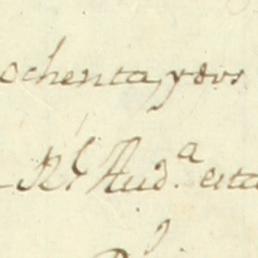 ochenta, y dos
Rl. Aud.a esta